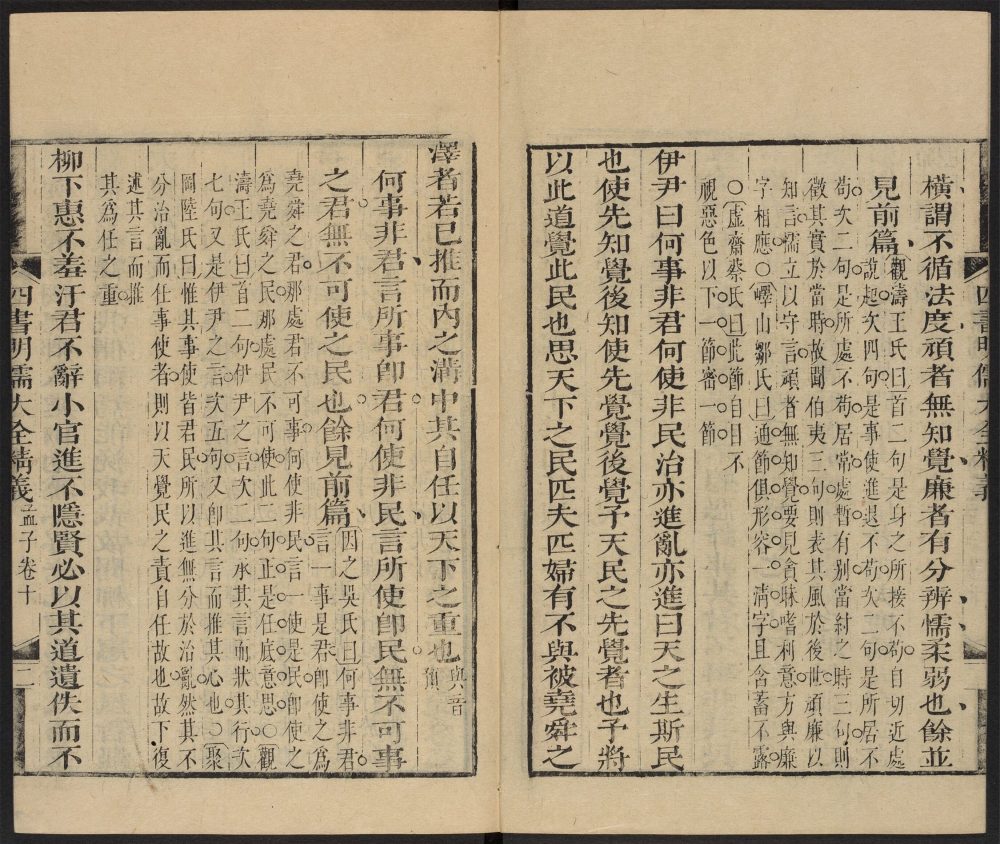 橫謂不循法度頑者無知覺廉者有分辨懦柔弱也餘並
見前篇觀濤王氏曰首二句是身之所接不苟自切近處
說起次四句是事使進退不苟次二句是所居不
苟次二句是所處不苟居常處暫有別當紂之時三句則
徵其實於當時故聞伯夷三句則表其風於後世頑廉以
知言懦立以守言頑者無知覺要見貪昧嗜利意方與廉
字相應○嶧山鄒氏曰通節俱形容一清字且含蓄不露
○虛齋蔡氏曰此節自目不
視惡色以下一節密一節
伊尹曰何事非君何使非民治亦進亂亦進曰天之生斯民
也使先知覺後知使先覺覺後覺予天民之先覺者也予將
以此道覺此民也思天下之民匹夫匹婦有不與被堯舜之
四書明儒大全精義
澤者若已推而內之溝中其自任以天下之重也與音預
何事非君言所事卽君何使非民言所使卽民無不可事
之君無不可使之民也餘見前篇因之吳氏曰何事非君
言一事是君卽使之爲
堯舜之君那處君不可事何使非民言一使是民卽使之
爲堯舜之民那處民不可使此二句正是任底意思○觀
濤王氏曰首二句伊尹之言次二句承其言而狀其行次
七句又是伊尹之言次五句又卽其言而推其心也○聚
岡陸氏曰惟其事使皆君民所以進無分於治亂然其不
分治亂而仕事使者則以天覺民之責自任故也故下復
述其言而推
其爲任之重
柳下惠不羞汙君不辭小官進不隱賢必以其道遺佚而不
四書明儒大全精義 孟子卷十 二